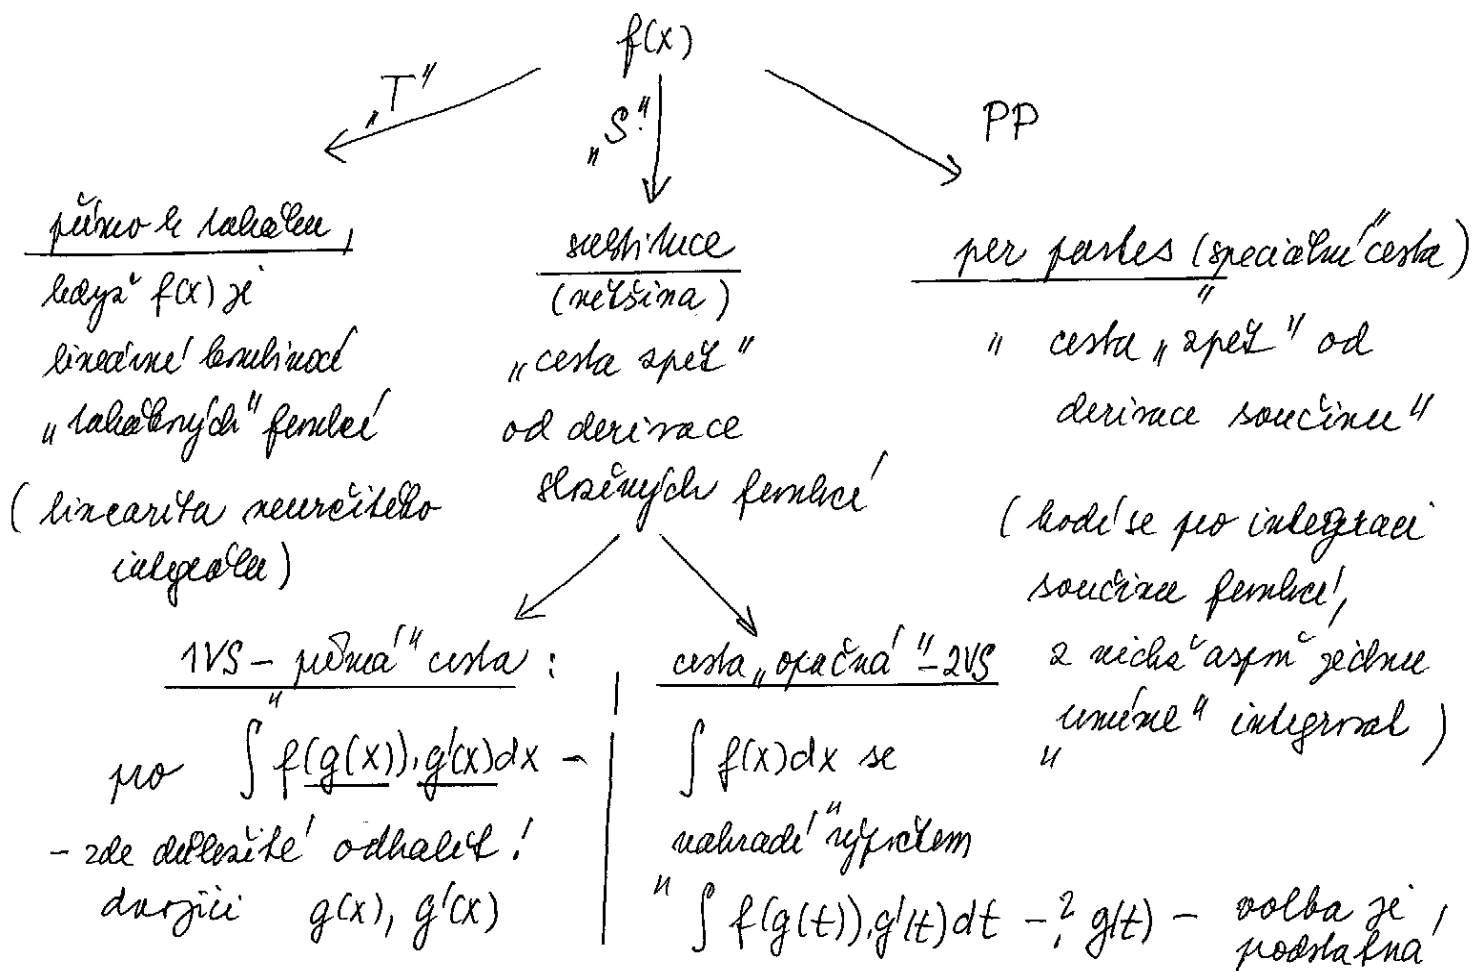 f(x)
„T“
„S“
PP
přímo k taháku,
když f(x) je
lineární kombinací
„tahákových“ funkcí
(linearita neurčitého
integrálu)
substituce
(většina)
„cesta zpět“
od derivace
složených funkcí
per partes („speciální“ cesta)
„cesta „zpět“ od
derivace součinu“
(hodí se pro integraci
součinu funkcí,
z nichž aspoň jednu
„umíme“ integrovat)
1VS – „přímá“ cesta:
pro ∫ f(g(x)).g'(x)dx –
– zde důležité odhalit!
dvojici g(x), g'(x)
cesta „opačná“ – 2VS
∫ f(x)dx se
nahradí „výpočtem“
∫ f(g(t)).g'(t)dt –? g(t) – volba je
podstatná!